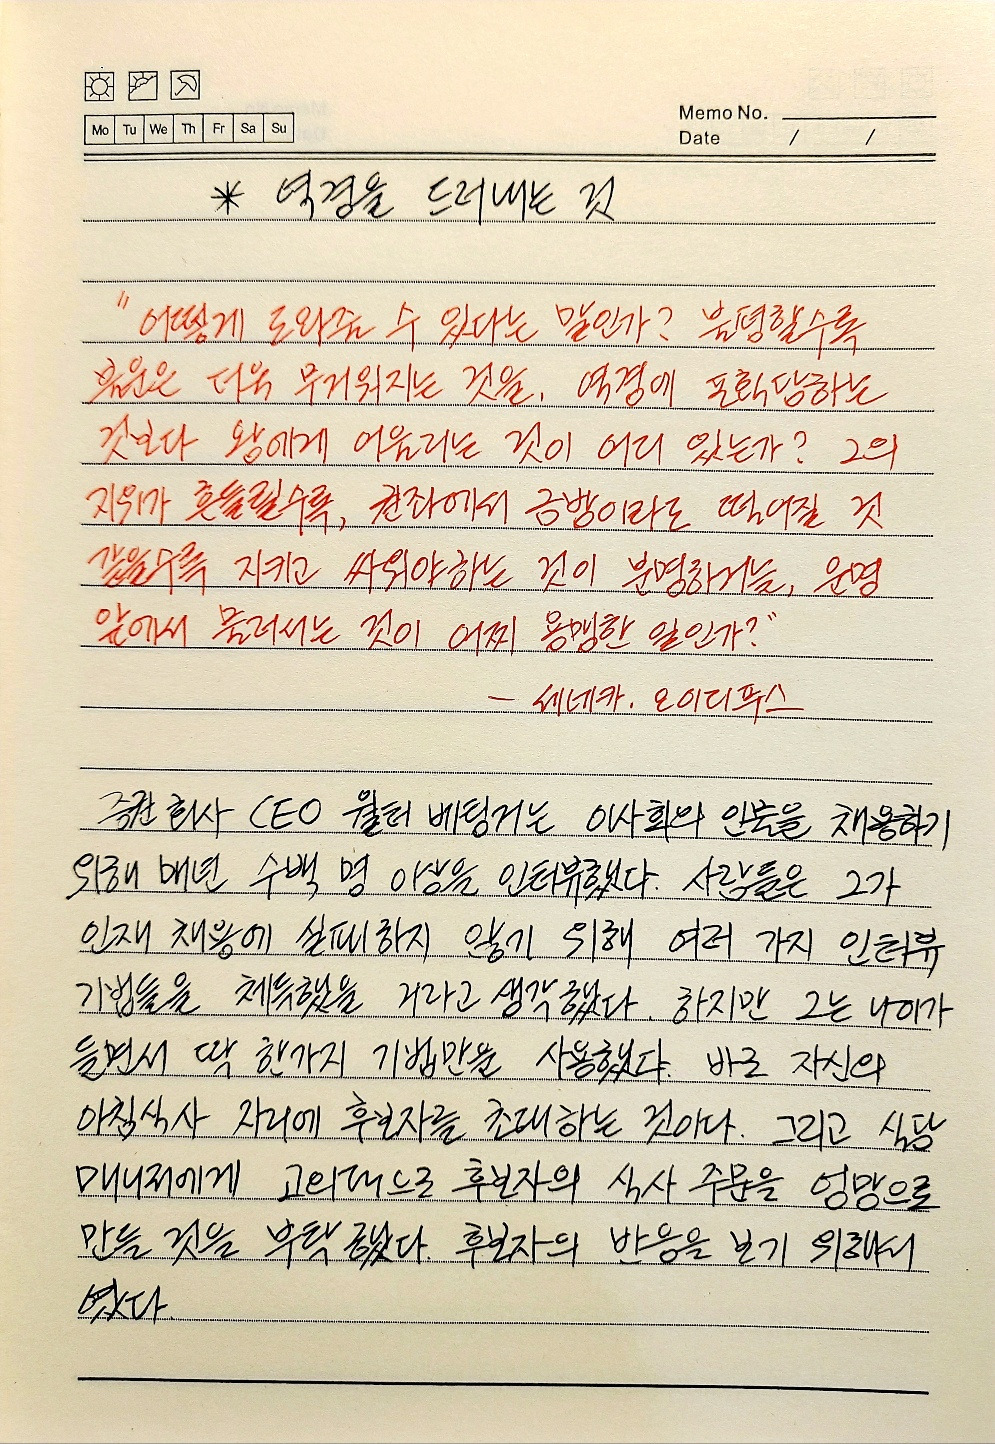 Mo Tu We Th Fr Sa Su
Memo No.
Date / /
* 역경을 드러내는 것
"어떻게 도와줄 수 있다는 말인가? 불평할수록
불운은 더욱 무거워지는 것을. 역경에 포획당하는
것보다 왕에게 어울리는 것이 어디 있는가? 그의
지위가 흔들릴수록, 권좌에서 금방이라도 떨어질 것
같을수록 지키고 싸워야하는 것이 분명하거늘, 운명
앞에서 물러서는 것이 어찌 용맹한 일인가?"
- 세네카. 오이디푸스
증권 회사 CEO 월터 베팅거는 이사회의 인물을 채용하기
위해 매년 수백 명 이상을 인터뷰했다. 사람들은 그가
인재 채용에 실패하지 않기 위해 여러 가지 인터뷰
기법들을 체득했을 거라고 생각했다. 하지만 그는 나이가
들면서 딱 한가지 기법만을 사용했다. 바로 자신의
아침식사 자리에 후보자를 초대하는 것이다. 그리고 식당
매니저에게 고의적으로 후보자의 식사 주문을 엉망으로
만들 것을 부탁했다. 후보자의 반응을 보기 위해서
였다.